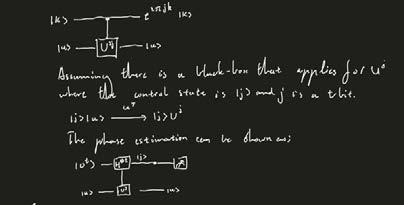 |k⟩ e^{iπjk} |k⟩
|u⟩ U^j |u⟩
Assuming there is a black-box that applies for U^j
where the control state is |j⟩ and j is a t bit.
|j⟩|u⟩ → |j⟩U^j
The phase estimation can be shown as;
|0^t⟩ H^{⊗t} |j⟩
|u⟩ U^j |u⟩